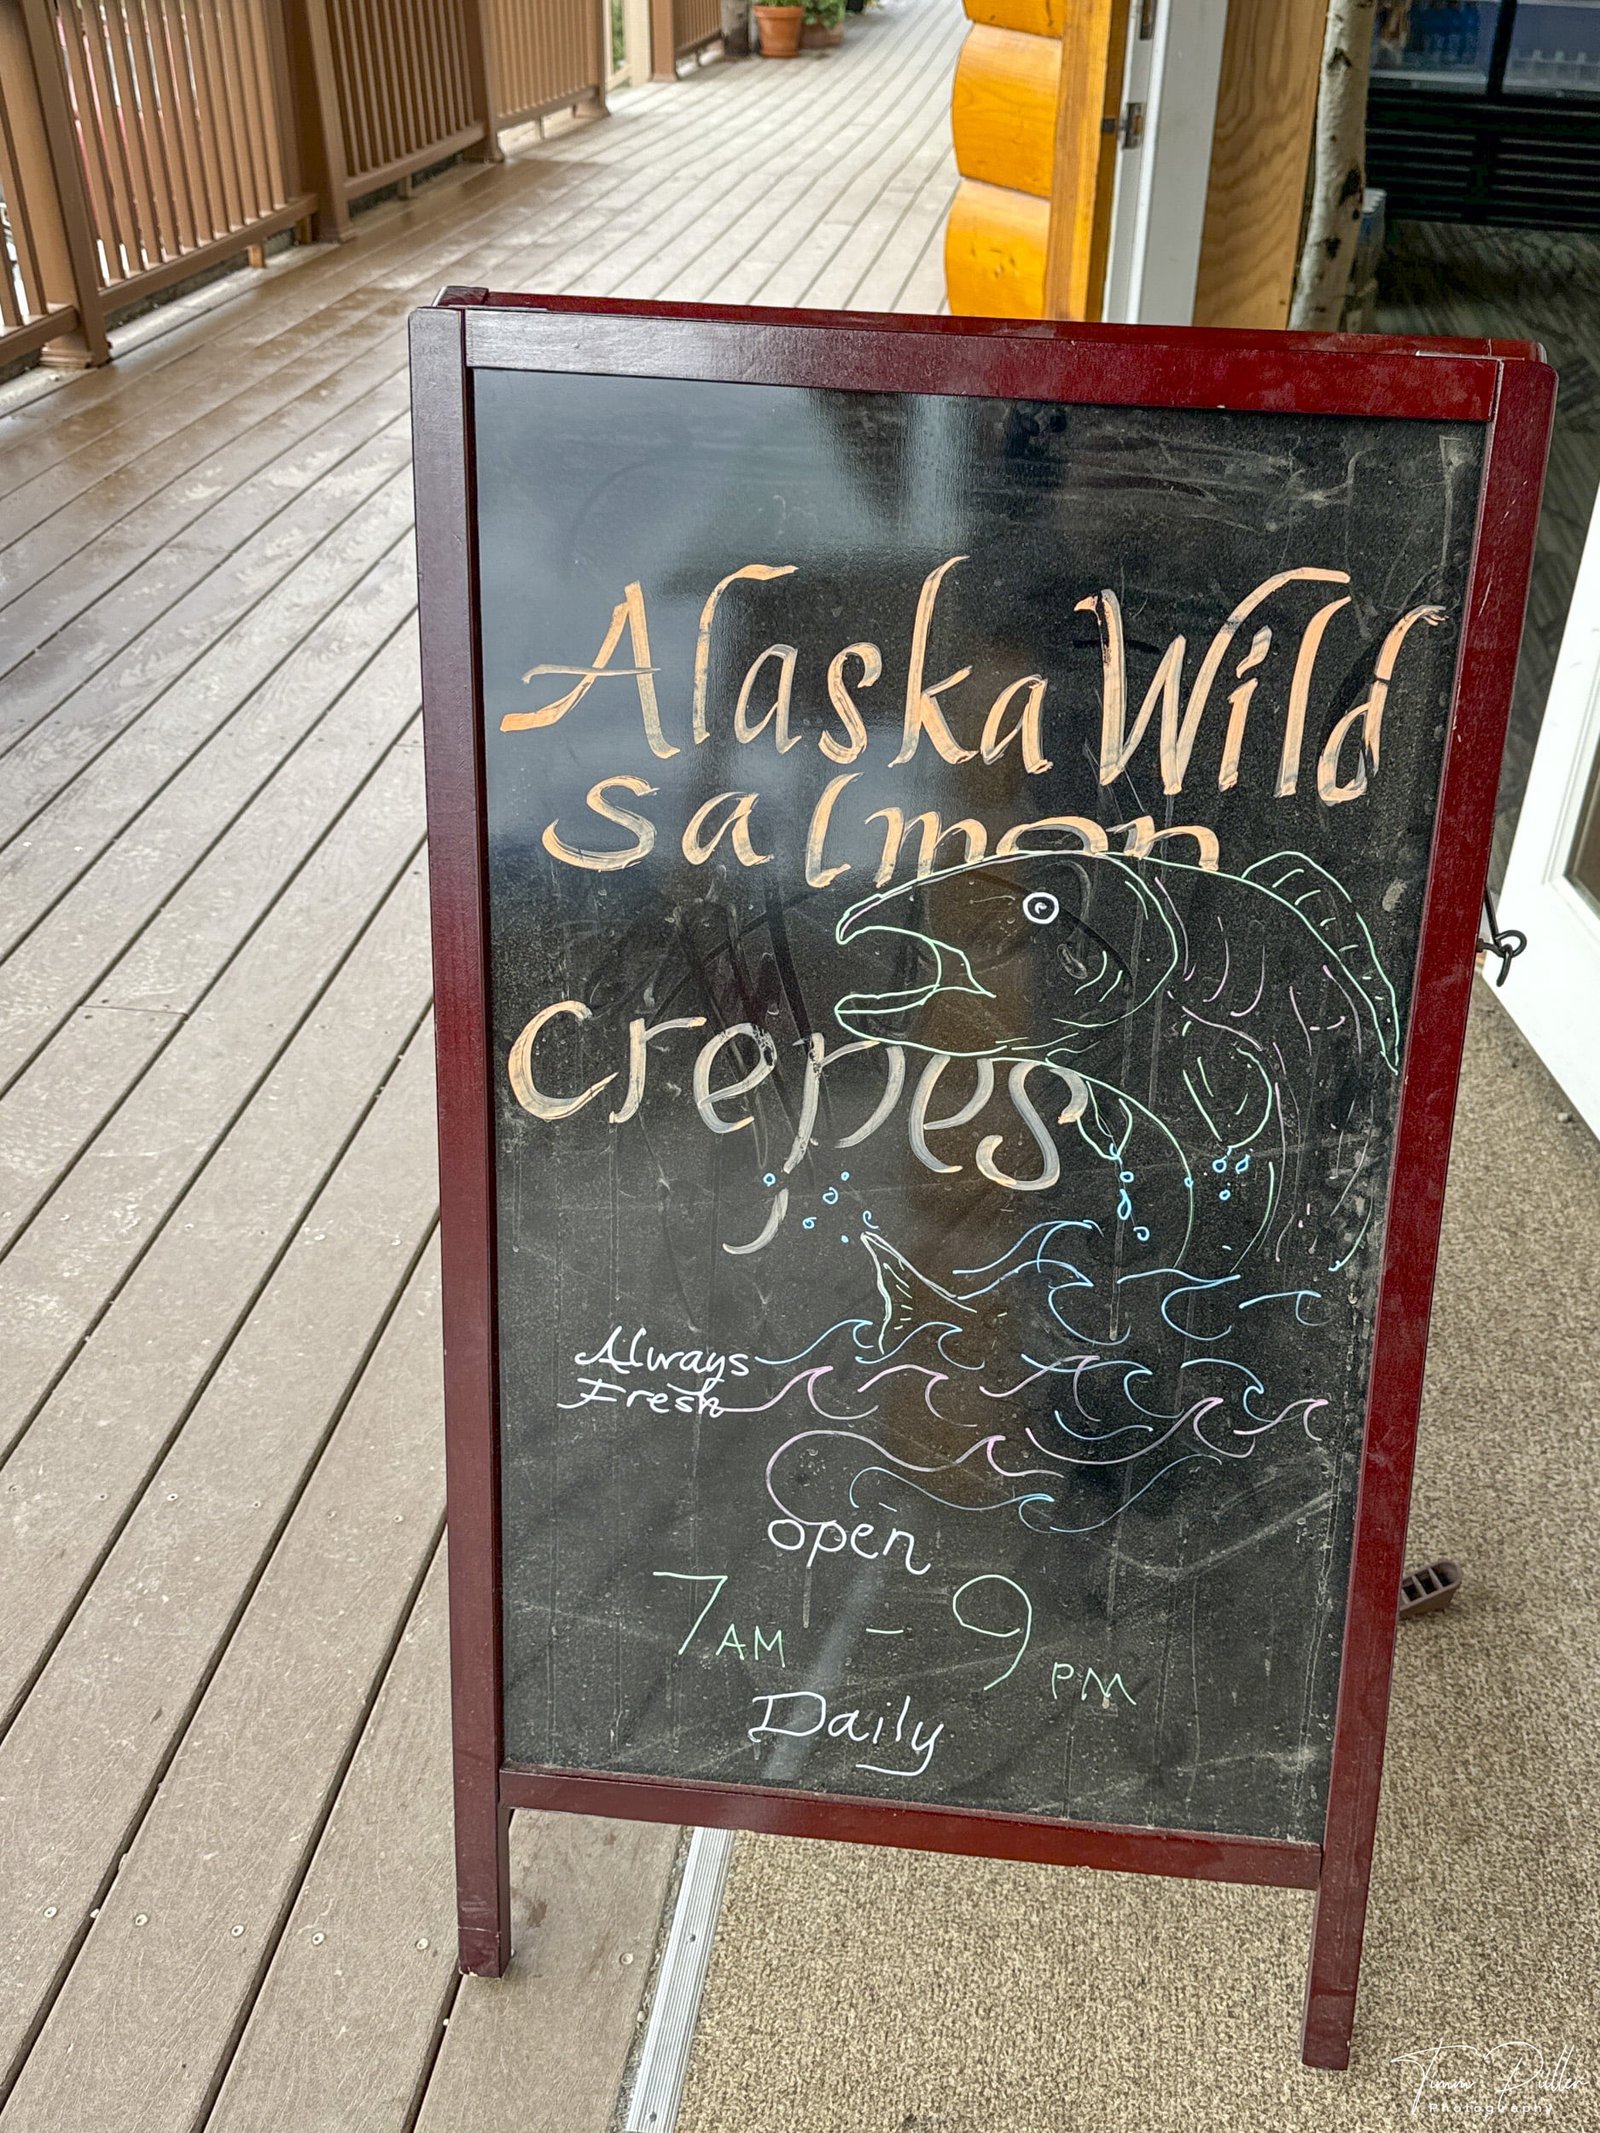 Alaska Wild
Salmon
Crepes
Always
Fresh
open
7 AM - 9 PM
Daily
Photography